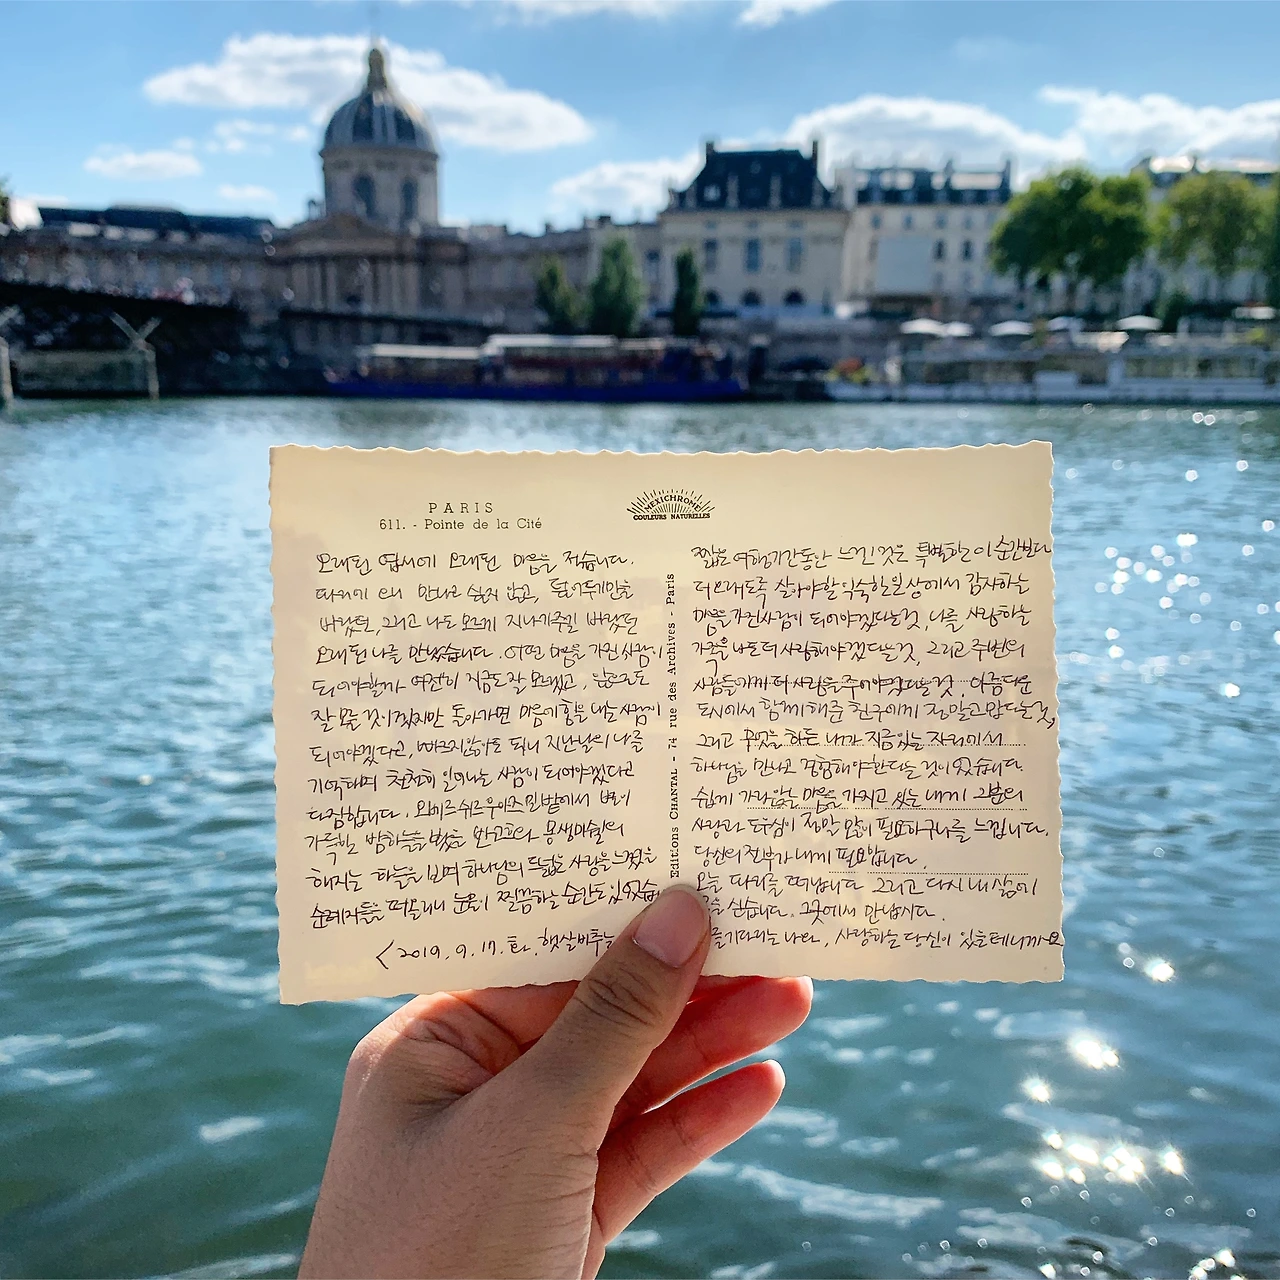 PARIS
611. - Pointe de la Cité
MEXICHROME
COULEURS NATURELLES
오래된 엽서에 오래된 마음을 적습니다.
만나고 싶지 않고,
버렸던, 그리고 나도 모르게 지나가주길 바랬던
오래된 나를 만났습니다. 어떤 마음을 가진 사람이
되어야할까 여전히 지금도 잘 모르겠고, 앞으로도
잘 모를 것이겠지만 돌아가면 마음에 힘을 내는 사람이
되어야겠다고, 빠르지않아도 지난날의 나를
기억하며 천천히 일어나는 사람이 되어야겠다고
다짐합니다. 오베르쉬르우아즈 밀밭에서 별이
가득한 밤하늘을 봤을 반고흐와 몽생미셸의
해지는 하늘을 보며 하나님의 드넓은 사랑을 느꼈을
순례자들을 떠올리니 눈물이 찔끔하는 순간도 있었습
<2019. 9. 17. 화. 햇살비추는
Editions CHANTAL - 74 rue des Archives - Paris
짧은 여행기간동안 느낀 것은 특별한 이 순간보다
더 오래도록 살아야할 익숙한 일상에서 감사하는
마음을 가진 사람이 되어야겠다는 것, 나를 사랑하는
가족을 나도 더 사랑해야겠다는 것, 그리고 주변의
사람들에게 더 사랑을 주어야겠다는 것, 아름다운
도시에서 함께해준 친구에게 정말 고맙다는 것,
그리고 무엇을 하든 내가 지금 있는 자리에서
하나님을 만나고 경험해야한다는 것이었습니다.
쉽게 가라앉는 마음을 가지고 있는 내게 그분의
사랑과 도우심이 정말 많이 필요하구나를 느낍니다.
당신의 전부가 내게 필요합니다.
오늘 파리를 떠납니다 그리고 다시 내 삶에
을 싣습니다. 그곳에서 만납시다.
기다리는 나와, 사랑하는 당신이 있을테니까요